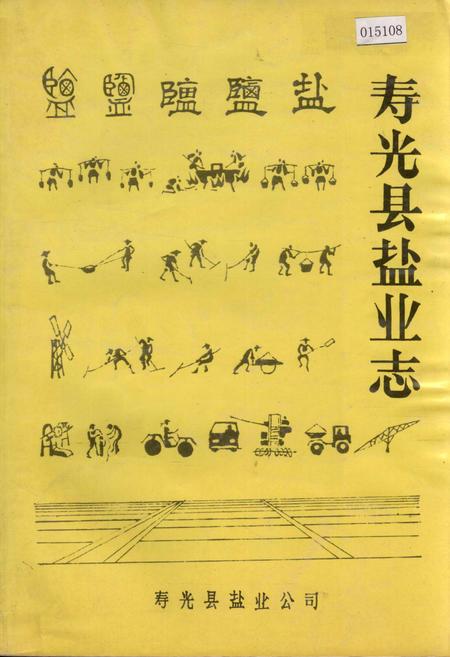 015108
鹽 鹽 鹽 鹽 盐
寿光县盐业志
寿光县盐业公司